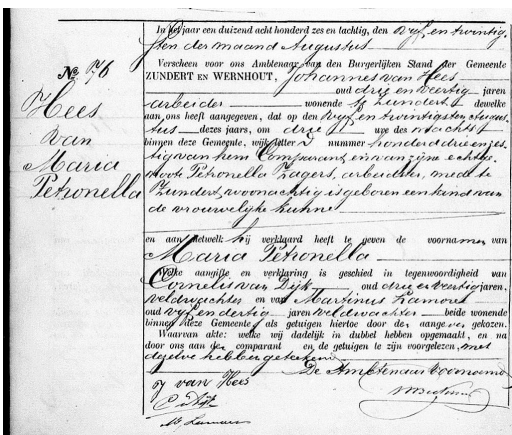 In het jaar een duizend acht honderd zes en tachtig, den vijf en twintig
sten der maand Augustus
Verscheen voor ons Ambtenaar van den Burgerlijken Stand der Gemeente
ZUNDERT EN WERNHOUT, Johannes van Hees
oud drie en veertig jaren
arbeider wonende te Zundert dewelke
aan ons heeft aangegeven, dat op den vijf en twintigsten Augus
tus dezes jaars, om drie ure des nachts
binnen deze Gemeente, wijk letter D nummer honderd drie en zes
tig van hem Comparant, en van zijne echtge
noote Petronella Zagers, arbeidster, mede te
Zundert woonachtig is geboren een kind van
de vrouwelijke kunne
en aan hetwelk hij verklaard heeft te geven de voornamen van
Maria Petronella
Welke aangifte en verklaring is geschied in tegenwoordigheid van
Cornelis van Dijk oud drie en veertig jaren,
veldwachter en van Martinus
oud vijf en dertig jaren veldwachter beide wonende
binnen deze Gemeente, als getuigen hiertoe door den aangever gekozen.
Waarvan akte: welke wij dadelijk in dubbel hebben opgemaakt, en na
door ons aan den comparant en de getuigen te zijn voorgelezen, met
dezelve hebben geteekend
De Ambtenaar voornoemd
J van Hees
C v Dijk
No. 76
Hees
van
Maria
Petronella